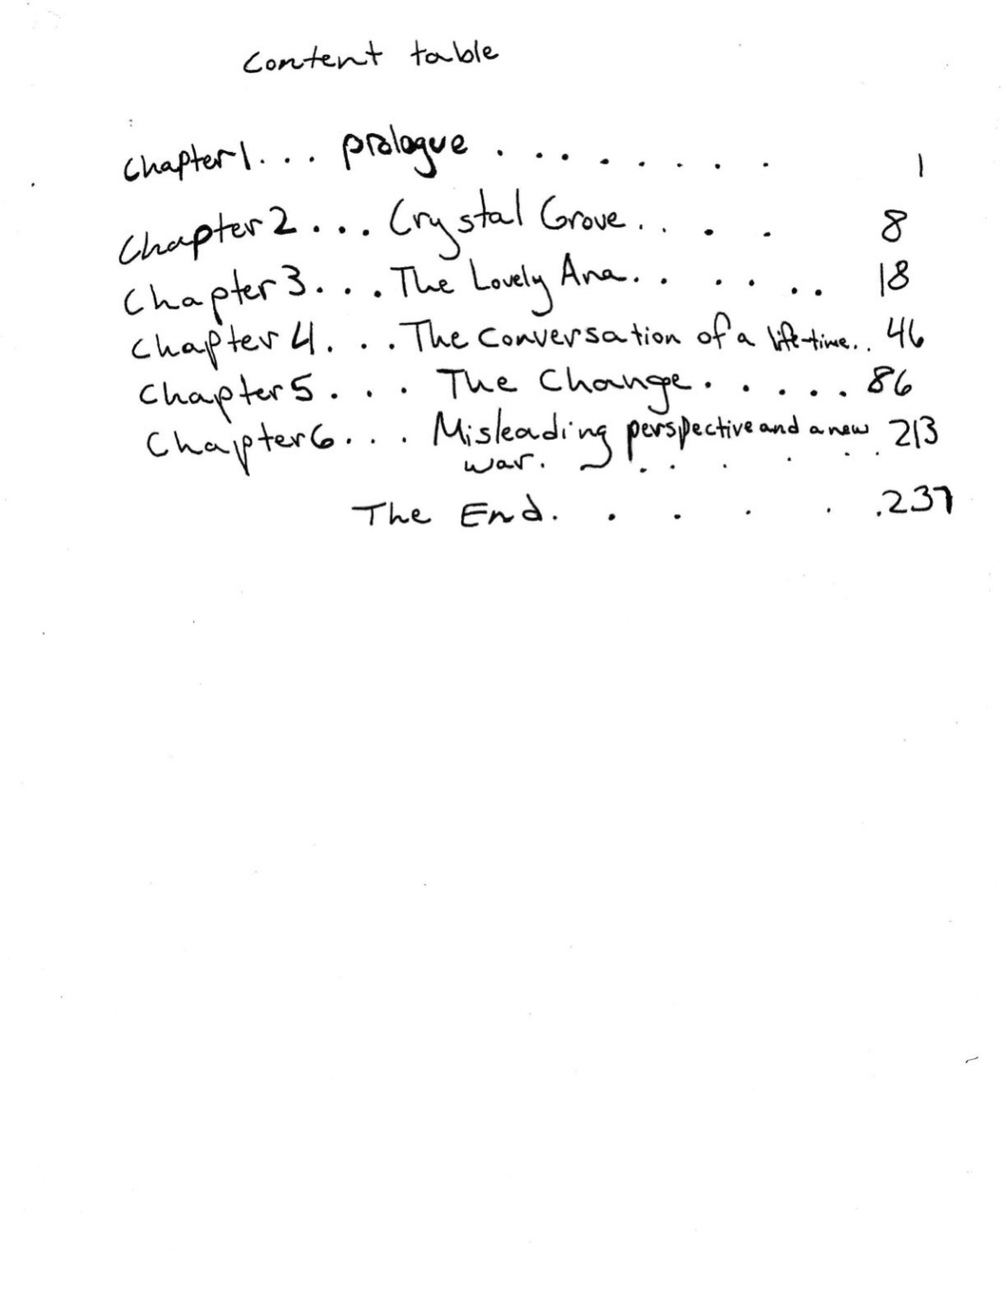 Content table
Chapter 1 . . . prologue . . . . . . . . 1
Chapter 2 . . . Crystal Grove . . . . 8
Chapter 3 . . . The Lovely Ana . . . . . . 18
Chapter 4 . . . The Conversation of a life-time . . 46
Chapter 5 . . . The Change . . . . . 86
Chapter 6 . . . Misleading perspective and a new 213
war. . . . . . .
The End . . . . . . 237